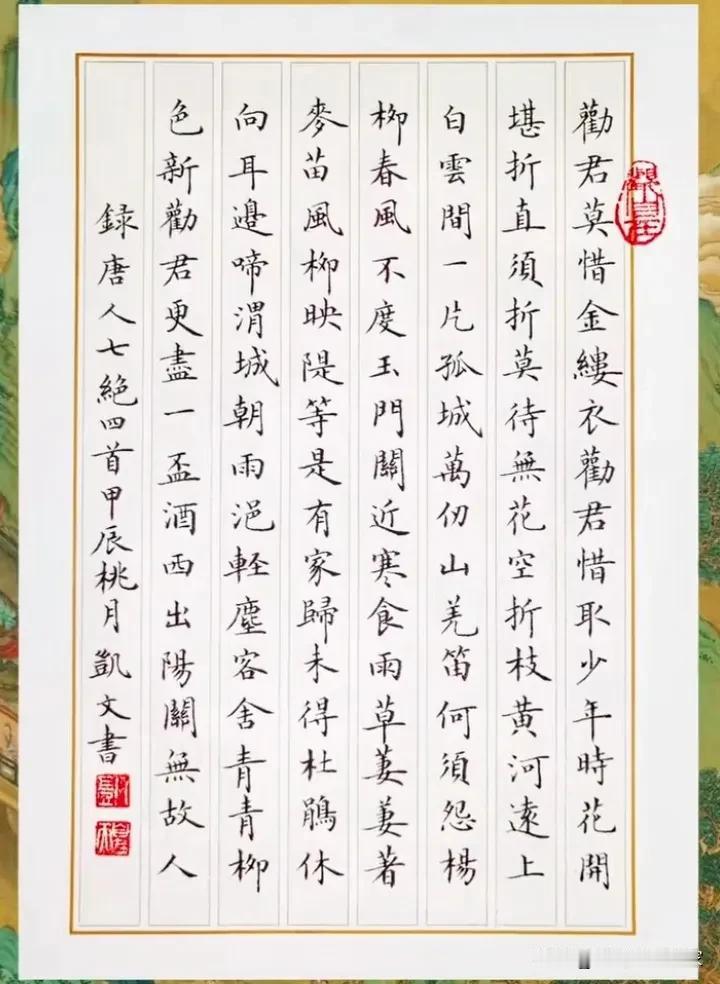 勸君莫惜金縷衣勸君惜取少年時花開
堪折直須折莫待無花空折枝黃河遠上
白雲間一片孤城萬仞山羌笛何須怨楊
柳春風不度玉門關近寒食雨草萋萋著
麥苗風柳映隄等是有家歸未得杜鵑休
向耳邊啼渭城朝雨浥輕塵客舍青青柳
色新勸君更盡一盃酒西出陽關無故人
録唐人七絕四首甲辰桃月凱文書